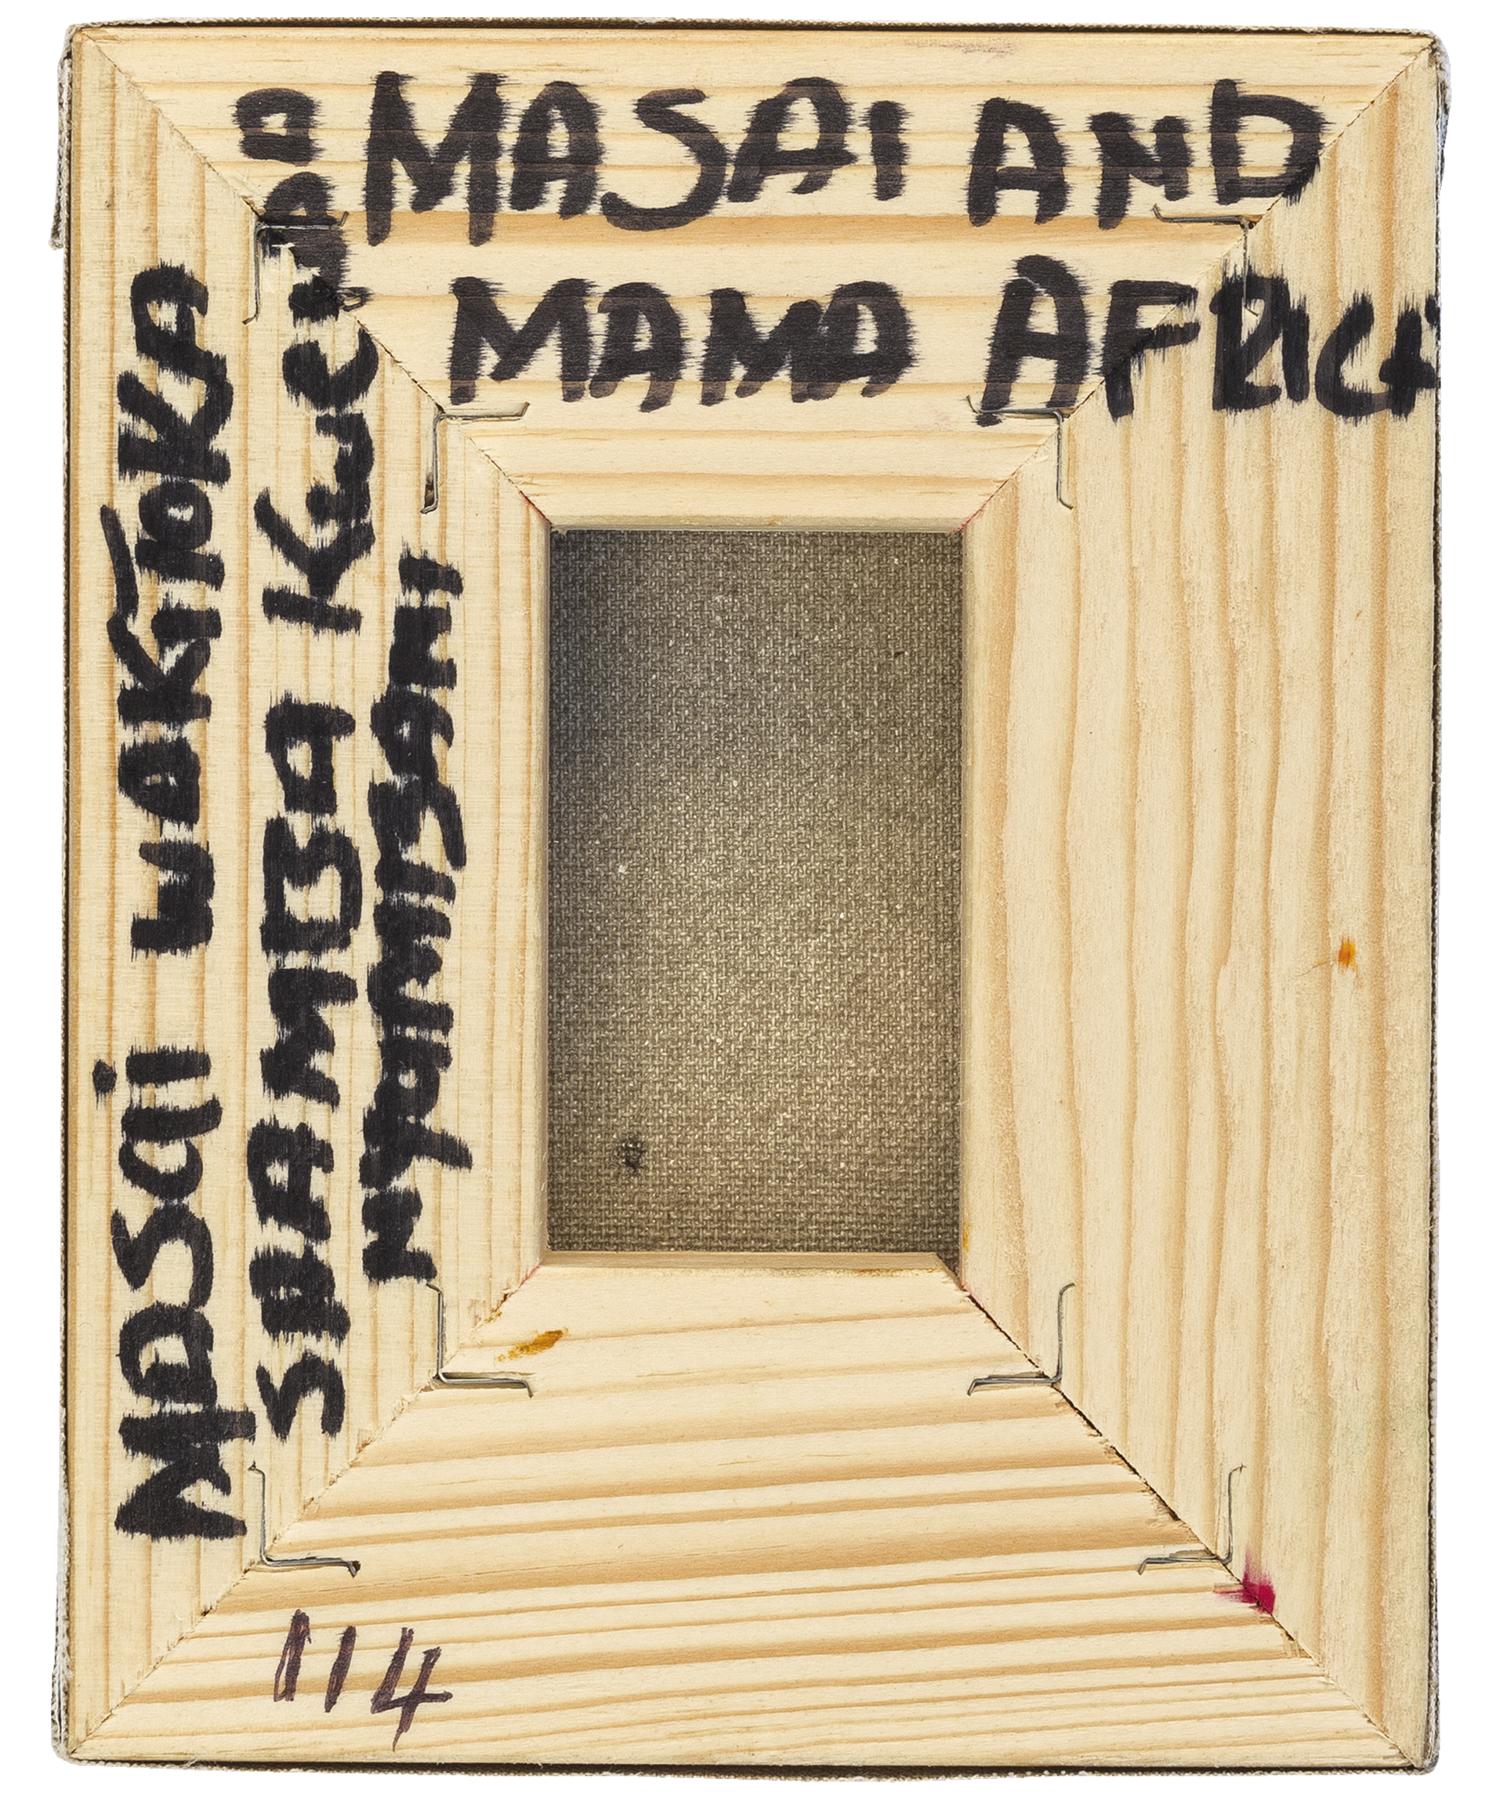 MASAI AND
MAMA AFRICA
MASAI WAKITOKA
SHAMBA KWENDA
NYUMBANI
114